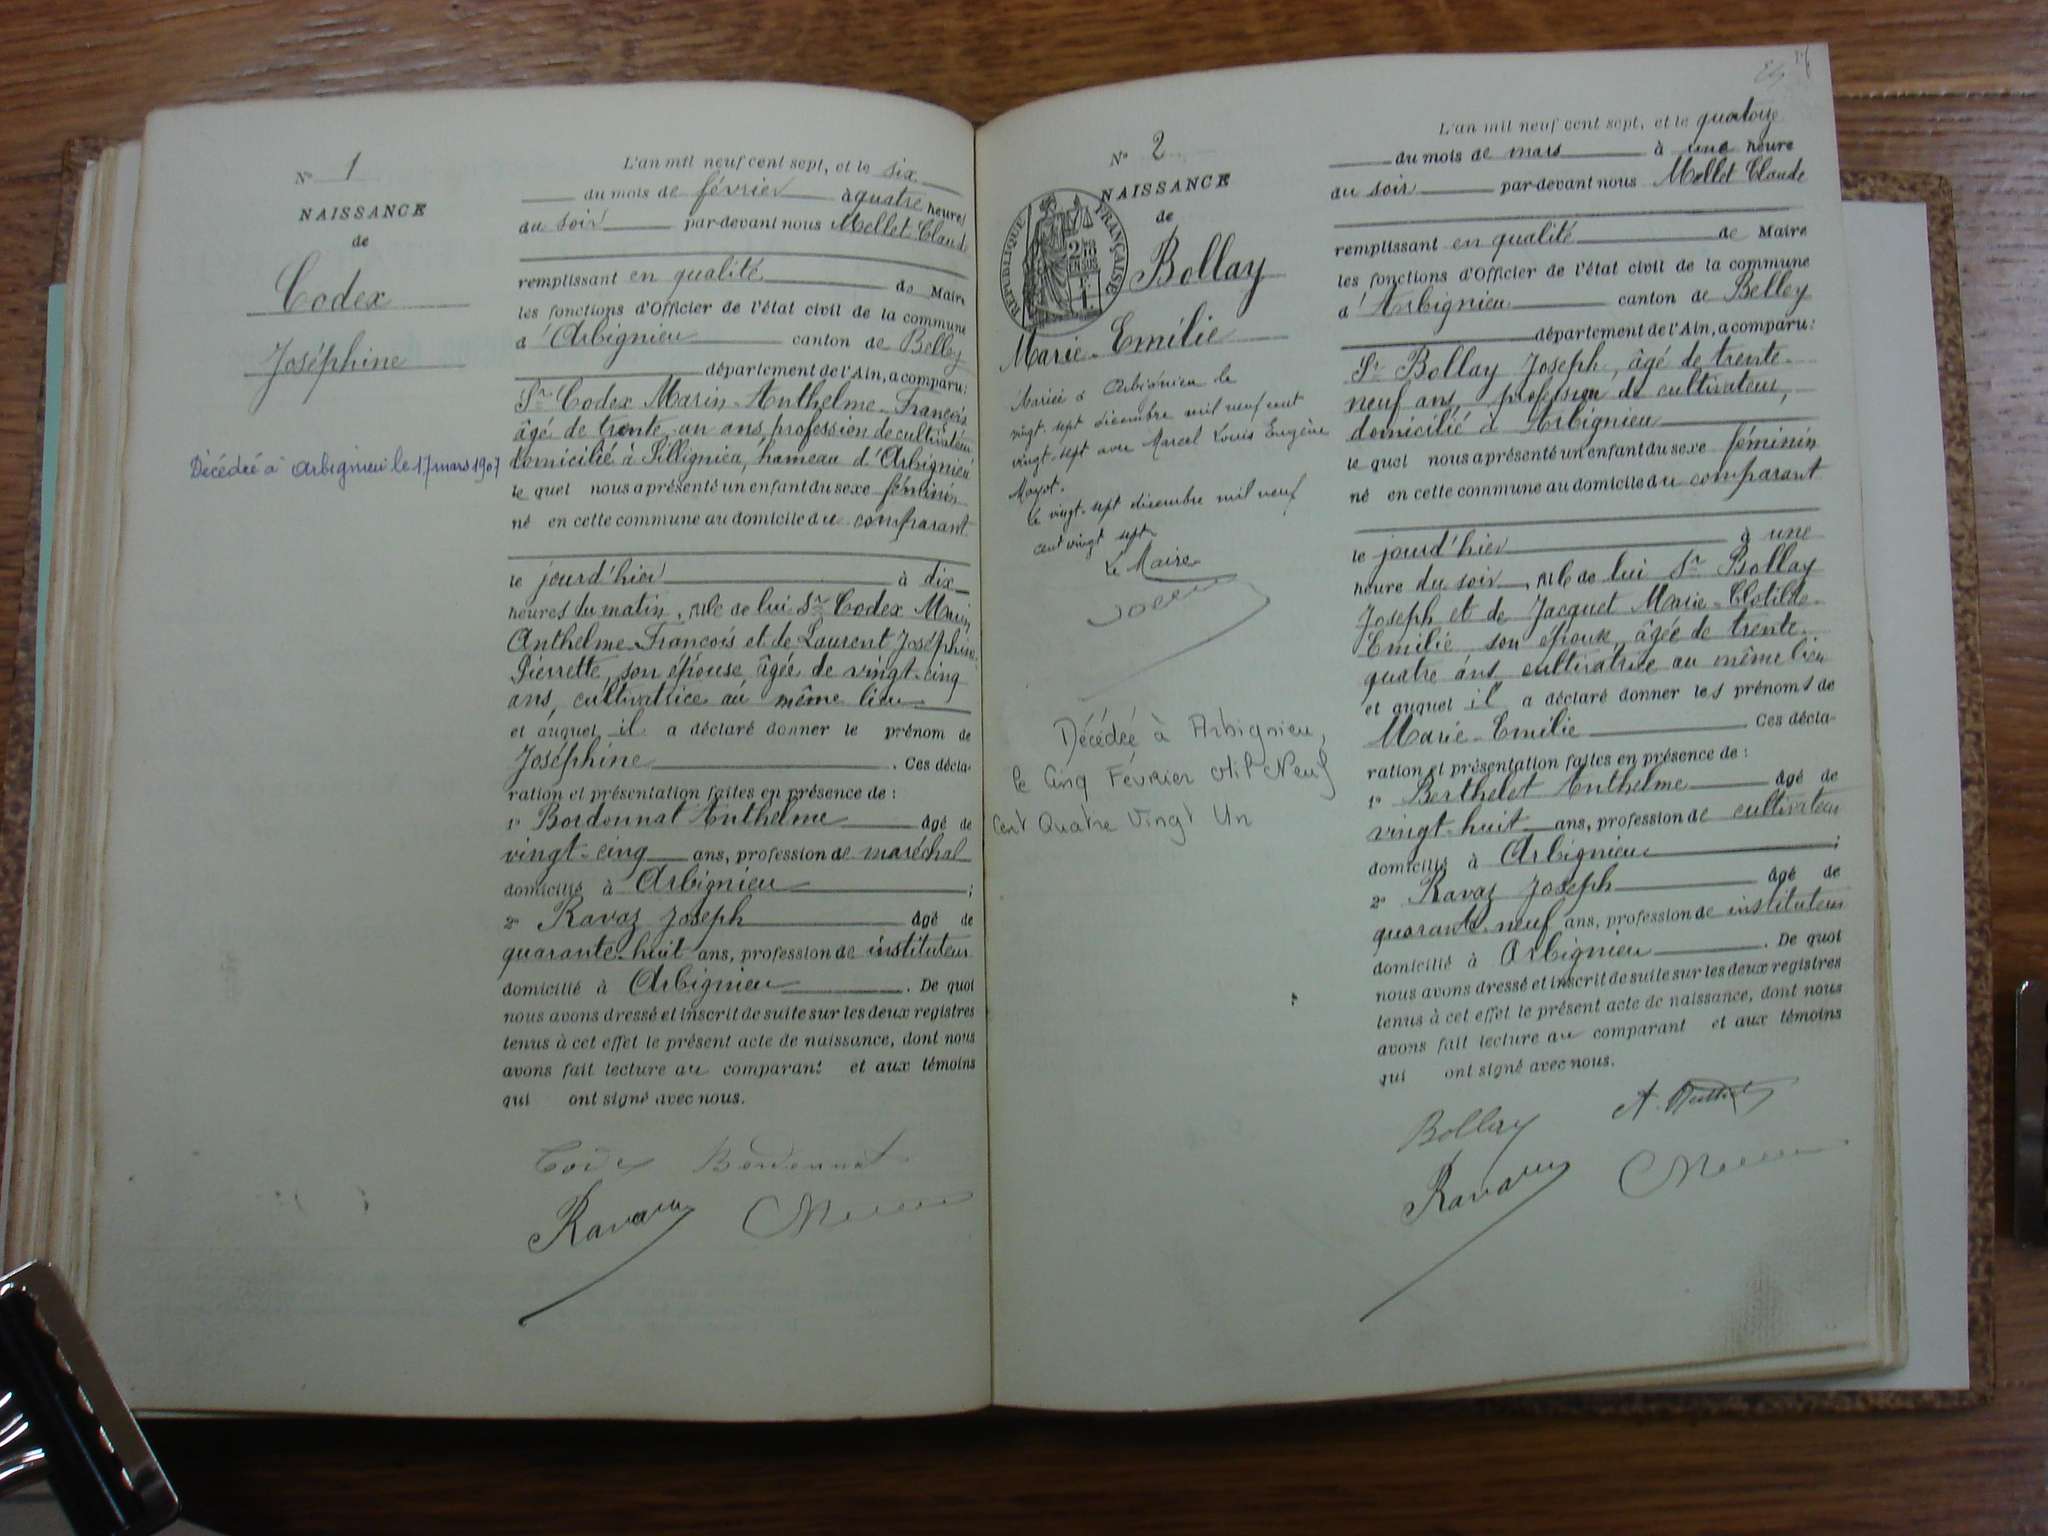 N° 1
NAISSANCE
de
Codex
Joséphine
Décédée à Arbignieu le 17 mars 1907
L'an mil neuf cent sept, et le six
du mois de février à quatre heures
du soir par-devant nous Mellet Claude
remplissant en qualité de Maire
les fonctions d'Officier de l'état civil de la commune
d'Arbignieu canton de Belley
département de l'Ain, a comparu:
Sr Codex Marin-Anthelme-François
âgé de trente un ans, profession de cultivateur
domicilié à Sillignieu, hameau d'Arbignieu
le quel nous a présenté un enfant du sexe féminin
né en cette commune au domicile du comparant
le jourd'hier à dix
heures du matin, né de lui Sr Codex Marin
Anthelme-François et de Laurent Joséphine
Pierrette, son épouse, âgée de vingt-cinq
ans, cultivatrice au même lieu
et auquel il a déclaré donner le prénom de
Joséphine . Ces décla-
ration et présentation faites en présence de :
1° Bordonnat Anthelme âgé de
vingt-cinq ans, profession de maréchal
domicilié à Arbignieu ;
2° Ravaz Joseph âgé de
quarante-huit ans, profession de instituteur
domicilié à Arbignieu . De quoi
nous avons dressé et inscrit de suite sur les deux registres
tenus à cet effet le présent acte de naissance, dont nous
avons fait lecture au comparant et aux témoins
qui ont signé avec nous.
Codex Bordonnat
Ravaz
N° 2
NAISSANCE
de
RÉPUBLIQUE FRANÇAISE
2/10 EN SUS
Bollay
Marie-Emilie
Mariée à Arbignieu le
vingt-sept décembre mil neuf cent
vingt-sept avec Marcel Louis Eugène
Le vingt-sept décembre mil neuf
cent vingt sept
Le Maire
Décédée à Arbignieu,
le Cinq Février Mil Neuf
Cent Quatre Vingt Un
L'an mil neuf cent sept, et le quatorze
du mois de mars à une heure
du soir par-devant nous Mellet Claude
remplissant en qualité de Maire
les fonctions d'Officier de l'état civil de la commune
d'Arbignieu canton de Belley
département de l'Ain, a comparu:
Sr Bollay Joseph, âgé de trente-
neuf ans, profession de cultivateur,
domicilié à Arbignieu
le quel nous a présenté un enfant du sexe féminin
né en cette commune au domicile du comparant
le jourd'hier à une
heure du soir, né de lui Sr Bollay
Joseph et de Jacquet Marie-Clotilde-
Emilie son épouse, âgée de trente-
quatre ans cultivatrice au même lieu
et auquel il a déclaré donner les prénoms de
Marie-Emilie Ces décla-
ration et présentation faites en présence de :
1° Berthelet Anthelme âgé de
vingt-huit ans, profession de cultivateur
domicilié à Arbignieu ;
2° Ravaz Joseph âgé de
quarante-neuf ans, profession de instituteur
domicilié à Arbignieu . De quoi
nous avons dressé et inscrit de suite sur les deux registres
tenus à cet effet le présent acte de naissance, dont nous
avons fait lecture au comparant et aux témoins
qui ont signé avec nous.
Bollay
Ravaz